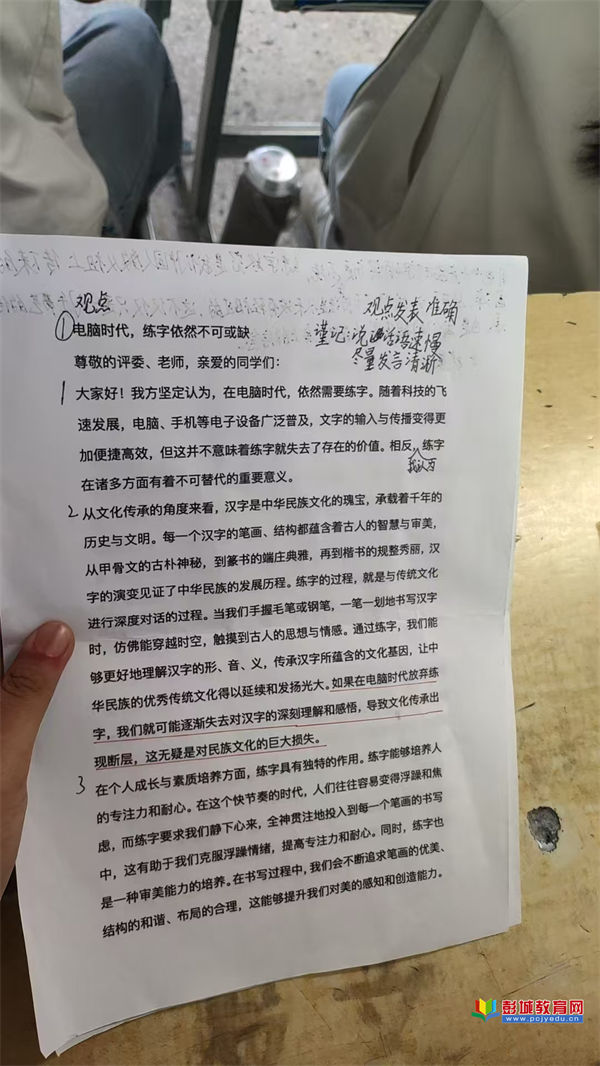 观点
观点发表 准确
谨记:说话语速慢
尽量发言清淅
①电脑时代，练字依然不可或缺
尊敬的评委、老师，亲爱的同学们：
1 大家好！我方坚定认为，在电脑时代，依然需要练字。随着科技的飞
速发展，电脑、手机等电子设备广泛普及，文字的输入与传播变得更
加便捷高效，但这并不意味着练字就失去了存在的价值。相反，练字
我认为
在诸多方面有着不可替代的重要意义。
2 从文化传承的角度来看，汉字是中华民族文化的瑰宝，承载着千年的
历史与文明。每一个汉字的笔画、结构都蕴含着古人的智慧与审美，
从甲骨文的古朴神秘，到篆书的端庄典雅，再到楷书的规整秀丽，汉
字的演变见证了中华民族的发展历程。练字的过程，就是与传统文化
进行深度对话的过程。当我们手握毛笔或钢笔，一笔一划地书写汉字
时，仿佛能穿越时空，触摸到古人的思想与情感。通过练字，我们能
够更好地理解汉字的形、音、义，传承汉字所蕴含的文化基因，让中
华民族的优秀传统文化得以延续和发扬光大。如果在电脑时代放弃练
字，我们就可能逐渐失去对汉字的深刻理解和感悟，导致文化传承出
现断层，这无疑是对民族文化的巨大损失。
3 在个人成长与素质培养方面，练字具有独特的作用。练字能够培养人
的专注力和耐心。在这个快节奏的时代，人们往往容易变得浮躁和焦
虑，而练字要求我们静下心来，全神贯注地投入到每一个笔画的书写
中，这有助于我们克服浮躁情绪，提高专注力和耐心。同时，练字也
是一种审美能力的培养。在书写过程中，我们会不断追求笔画的优美、
结构的和谐、布局的合理，这能够提升我们对美的感知和创造能力。
彭城教育网
www.pcjyedu.cn